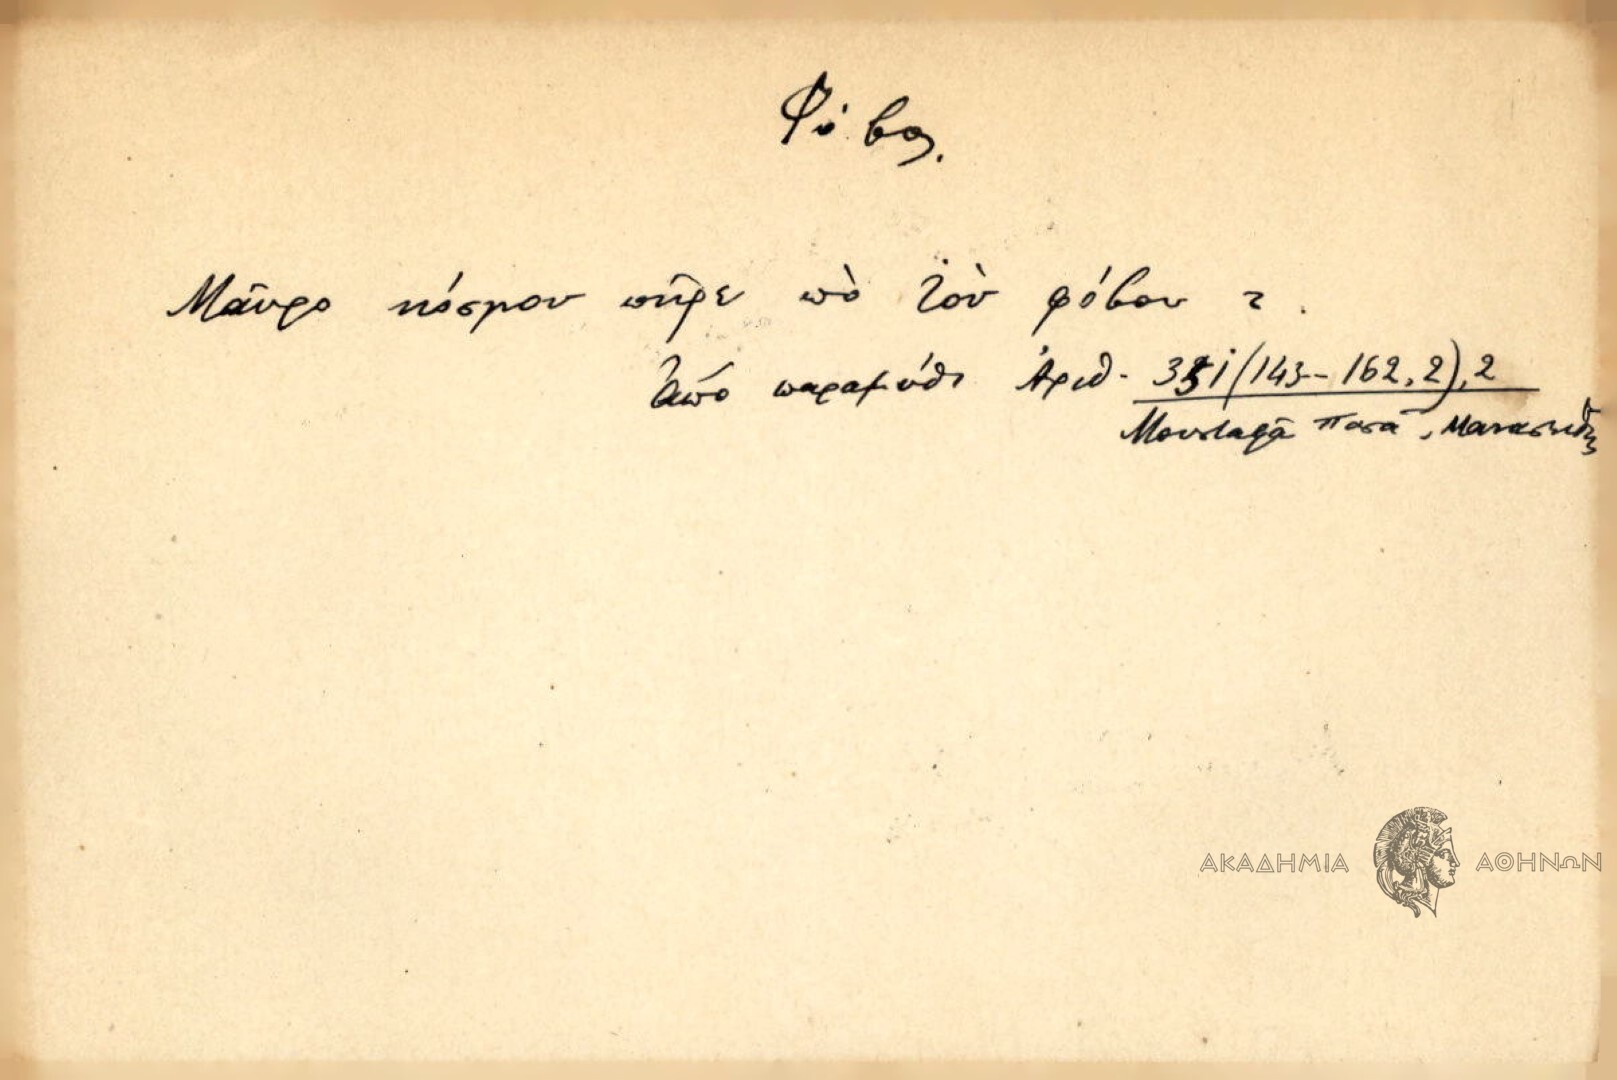 Φόβος.
Μαῦρο κόσμου πῆρε πὸ τοὺ φόβου τ.
Ἀπὸ παραμύθι Ἀριθ. 351 (143-162, 2), 2
Μουσταφᾶ Πασᾶ, Μανασσείδης
ΑΚΑΔΗΜΙΑ ΑΘΗΝΩΝ